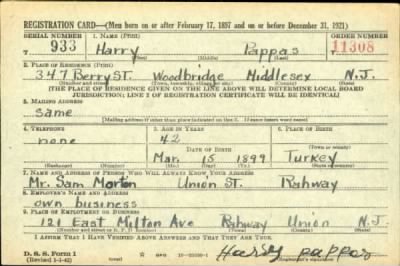 REGISTRATION CARD—(Men born on or after February 17, 1897 and on or before December 31, 1921)
SERIAL NUMBER 1. NAME (Print) ORDER NUMBER
T 933 Harry Pappas 11308
(First) (Middle) (Last)
2. PLACE OF RESIDENCE (Print)
347 Berry ST. Woodbridge Middlesex N.J.
(Number and street) (Town, township, village, or city) (County) (State)
[THE PLACE OF RESIDENCE GIVEN ON THE LINE ABOVE WILL DETERMINE LOCAL BOARD
JURISDICTION; LINE 2 OF REGISTRATION CERTIFICATE WILL BE IDENTICAL]
3. MAILING ADDRESS
Same
[Mailing address if other than place indicated on line 2. If same insert word same]
4. TELEPHONE 5. AGE IN YEARS 6. PLACE OF BIRTH
none 42
DATE OF BIRTH (Town or county)
Mar. 15 1899 Turkey
(Exchange) (Number) (Mo.) (Day) (Yr.) (State or country)
7. NAME AND ADDRESS OF PERSON WHO WILL ALWAYS KNOW YOUR ADDRESS
Mr. Sam Morton Union St. Rahway
8. EMPLOYER'S NAME AND ADDRESS
own business
9. PLACE OF EMPLOYMENT OR BUSINESS
121 East Milton Ave Rahway Union N.J.
(Number and street or R. F. D. number) (Town) (County) (State)
I AFFIRM THAT I HAVE VERIFIED ABOVE ANSWERS AND THAT THEY ARE TRUE.
D. S. S. Form 1
(Revised 1-1-42) Harry pappas
(Registrant's signature)